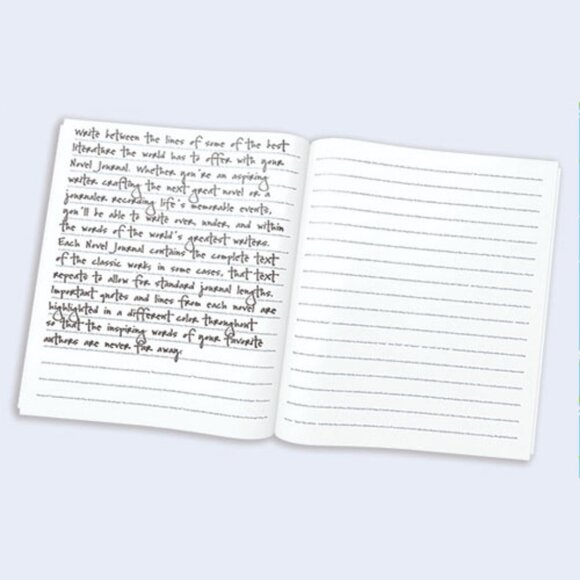 Write between the lines of some of the best
literature the world has to offer with your
Novel Journal. Whether you're an aspiring
writer crafting the next great novel or a
journaler recording life's memorable events,
you'll be able to write over, under, and within
the words of the world's greatest writers.
Each Novel Journal contains the complete text
of the classic works in some cases, that text
repeats to allow for standard journal lengths.
Important quotes and lines from each novel are
highlighted in a different color throughout
so that the inspiring words of your favorite
authors are never far away.